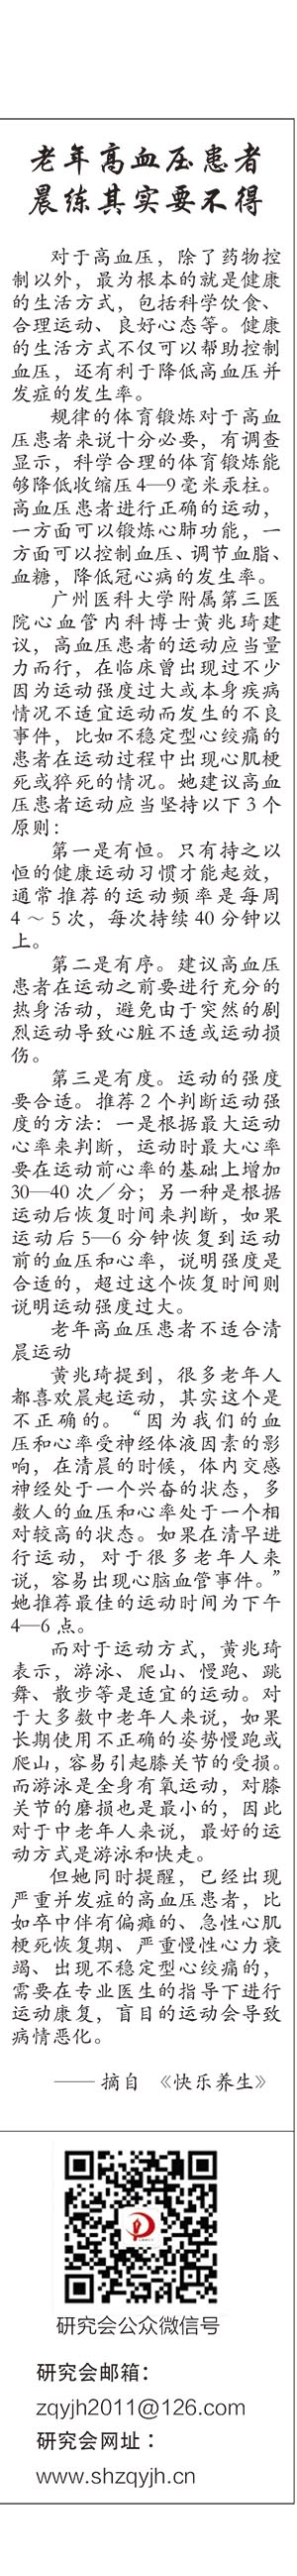 老年高血压患者
晨练其实要不得
对于高血压，除了药物控
制以外，最为根本的就是健康
的生活方式，包括科学饮食、
合理运动、良好心态等。健康
的生活方式不仅可以帮助控制
血压，还有利于降低高血压并
发症的发生率。
规律的体育锻炼对于高血
压患者来说十分必要，有调查
显示，科学合理的体育锻炼能
够降低收缩压4—9毫米汞柱。
高血压患者进行正确的运动，
一方面可以锻炼心肺功能，一
方面可以控制血压、调节血脂、
血糖，降低冠心病的发生率。
广州医科大学附属第三医
院心血管内科博士黄兆琦建
议，高血压患者的运动应当量
力而行，在临床曾出现过不少
因为运动强度过大或本身疾病
情况不适宜运动而发生的不良
事件，比如不稳定型心绞痛的
患者在运动过程中出现心肌梗
死或猝死的情况。她建议高血
压患者运动应当坚持以下3个
原则：
第一是有恒。只有持之以
恒的健康运动习惯才能起效，
通常推荐的运动频率是每周
4～5次，每次持续40分钟以
上。
第二是有序。建议高血压
患者在运动之前要进行充分的
热身活动，避免由于突然的剧
烈运动导致心脏不适或运动损
伤。
第三是有度。运动的强度
要合适。推荐2个判断运动强
度的方法：一是根据最大运动
心率来判断，运动时最大心率
要在运动前心率的基础上增加
30—40次／分；另一种是根据
运动后恢复时间来判断，如果
运动后5—6分钟恢复到运动
前的血压和心率，说明强度是
合适的，超过这个恢复时间则
说明运动强度过大。
老年高血压患者不适合清
晨运动
黄兆琦提到，很多老年人
都喜欢晨起运动，其实这个是
不正确的。“因为我们的血
压和心率受神经体液因素的影
响，在清晨的时候，体内交感
神经处于一个兴奋的状态，多
数人的血压和心率处于一个相
对较高的状态。如果在清早进
行运动，对于很多老年人来
说，容易出现心脑血管事件。”
她推荐最佳的运动时间为下午
4—6点。
而对于运动方式，黄兆琦
表示，游泳、爬山、慢跑、跳
舞、散步等是适宜的运动。对
于大多数中老年人来说，如果
长期使用不正确的姿势慢跑或
爬山，容易引起膝关节的受损。
而游泳是全身有氧运动，对膝
关节的磨损也是最小的，因此
对于中老年人来说，最好的运
动方式是游泳和快走。
但她同时提醒，已经出现
严重并发症的高血压患者，比
如卒中伴有偏瘫的、急性心肌
梗死恢复期、严重慢性心力衰
竭、出现不稳定型心绞痛的，
需要在专业医生的指导下进行
运动康复，盲目的运动会导致
病情恶化。
—— 摘自 《快乐养生》
研究会公众微信号
研究会邮箱：
zqyjh2011@126.com
研究会网址：
www.shzqyjh.cn